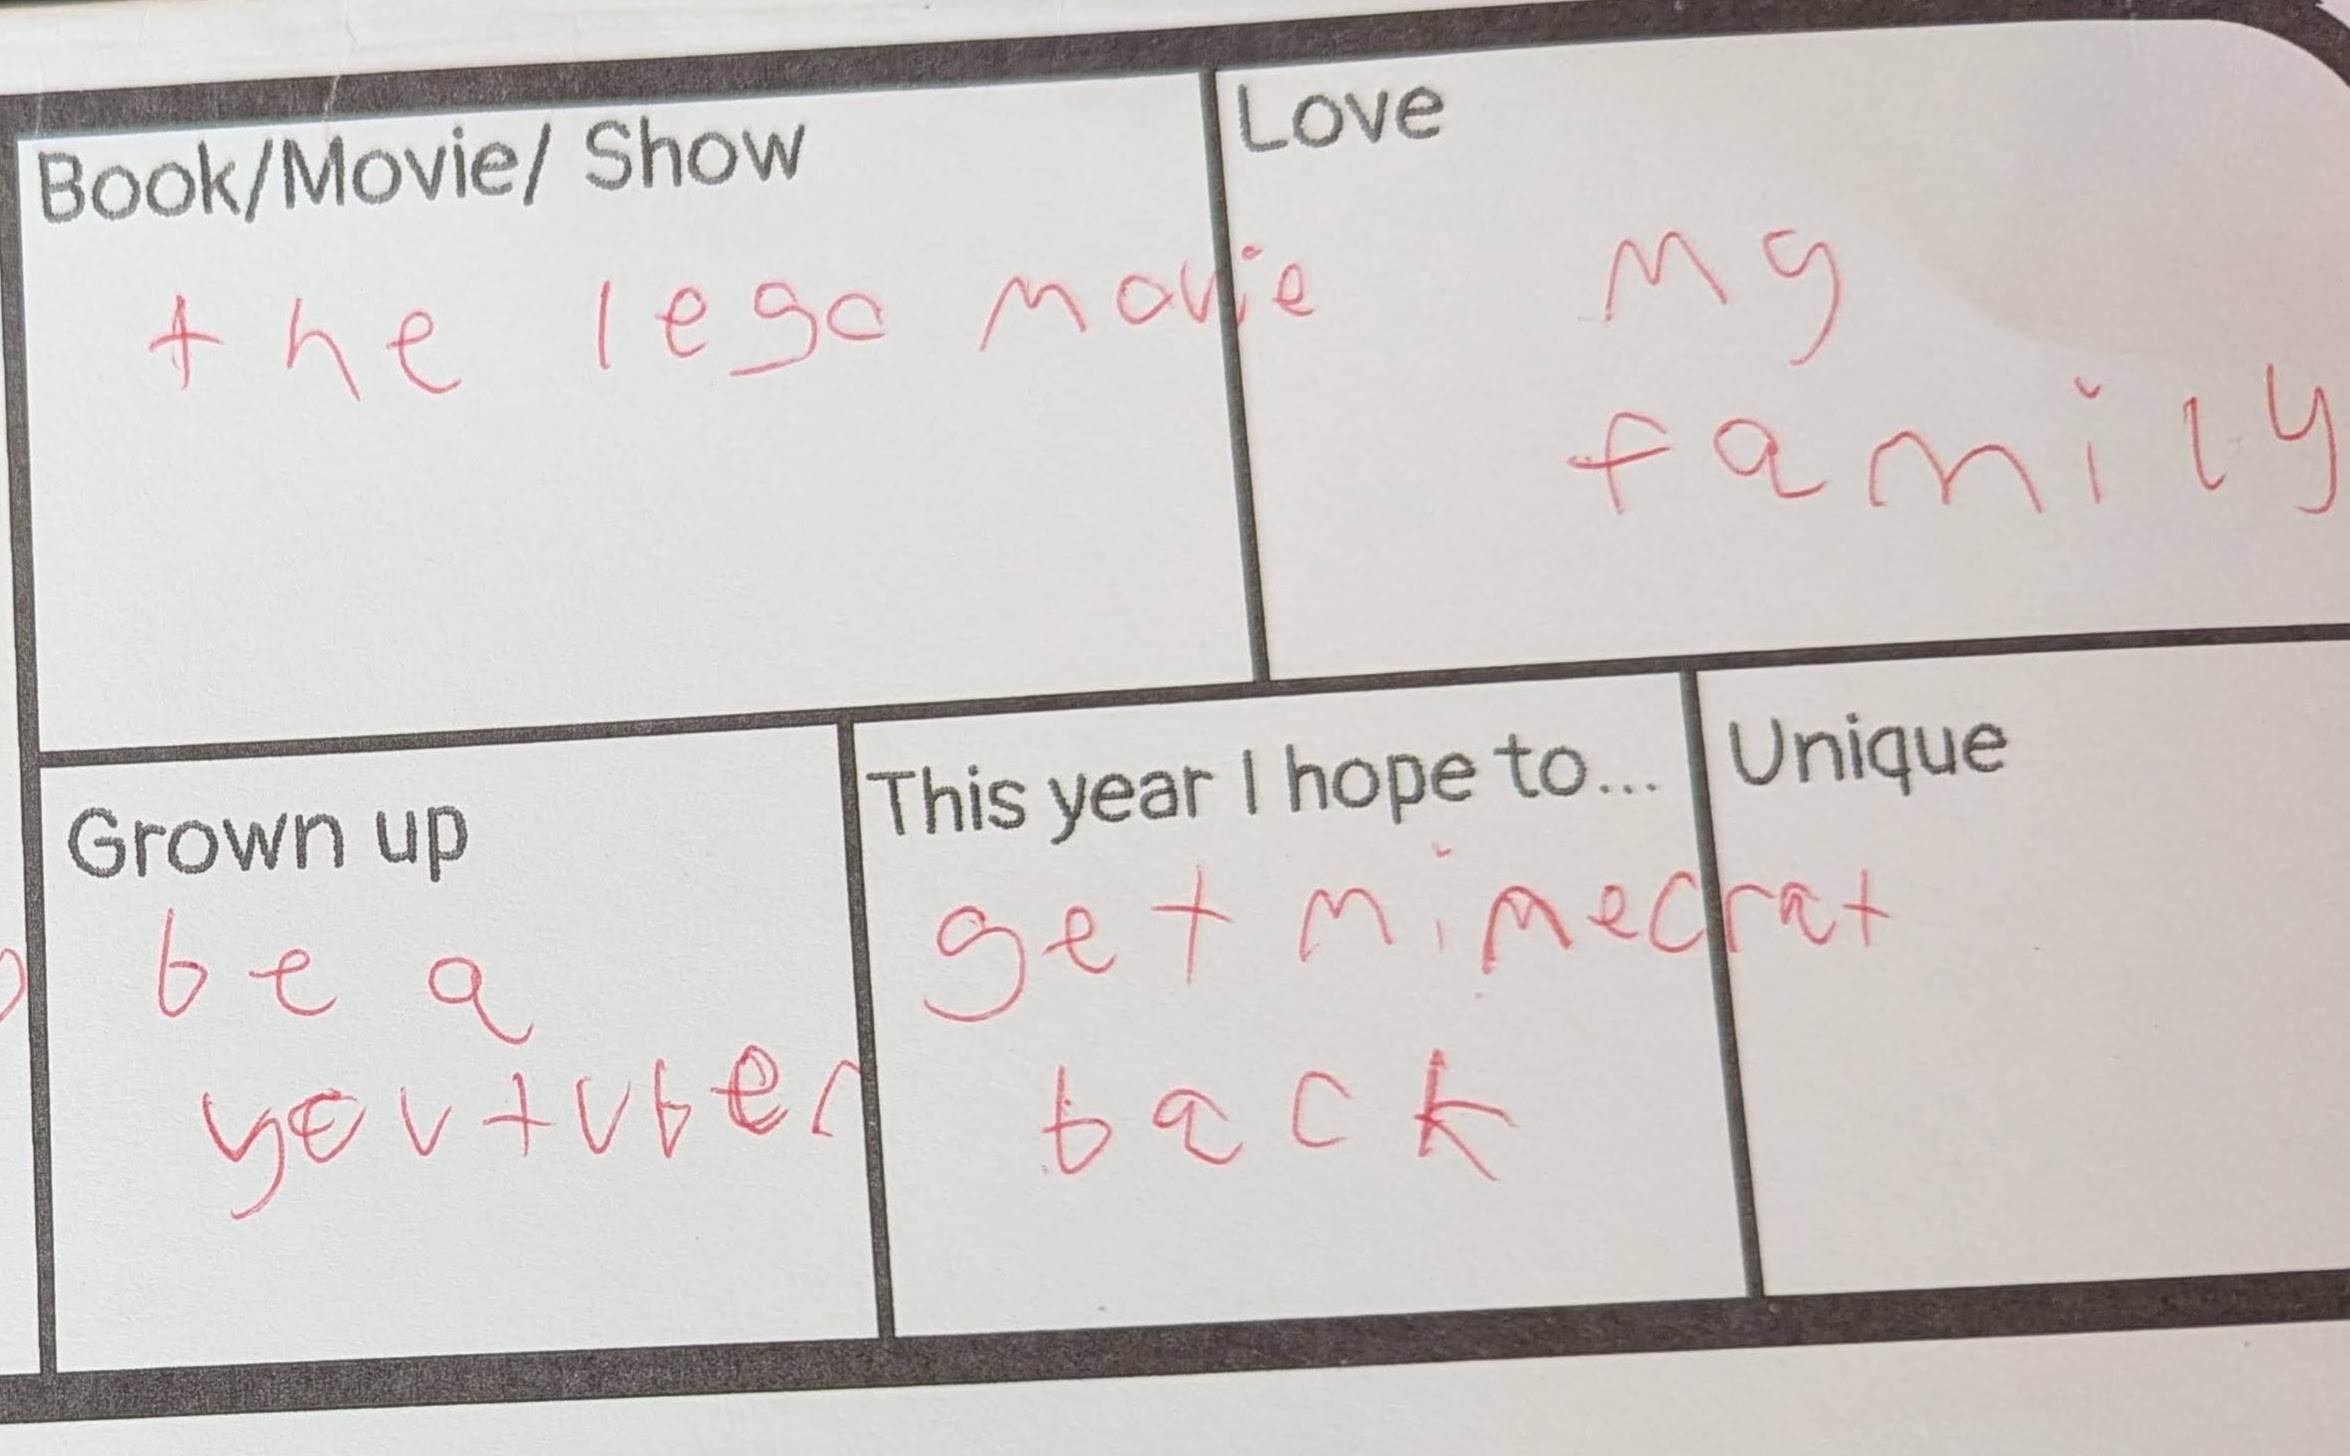 Book/Movie/ Show
the lego movie
Love
my
family
Grown up
be a
youtuber
This year I hope to...
get minecrat
back
Unique